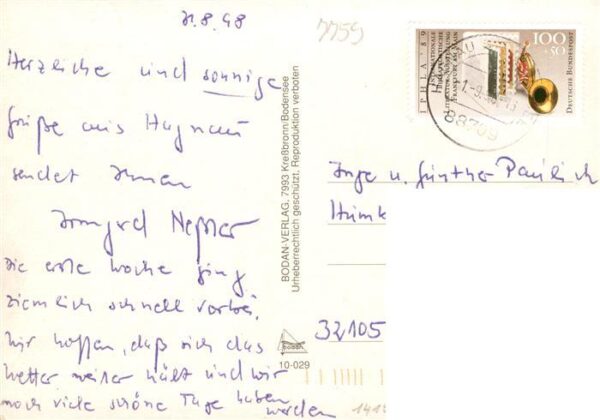 31.8.98
7759
Herzliche und sonnige
Grüße aus Hagnau
sendet Ihnen
Irmgrd Neßler
Die erste Woche ging
ziemlich schnell vorbei.
Wir hoffen, daß sich das
Wetter weiter hält und wir
noch viele schöne Tage haben
werden
BODAN-VERLAG, 7993 Kreßbronn/Bodensee
Urheberrechtlich geschützt, Reproduktion verboten
BODAN
10-029
IPHLA '89
INTERNATIONALE
PHILATELISTISCHE
LITERATUR-AUSSTELLUNG
FRANKFURT AM MAIN
100
+50
DEUTSCHE BUNDESPOST
88709
Inge u. Günther
32105